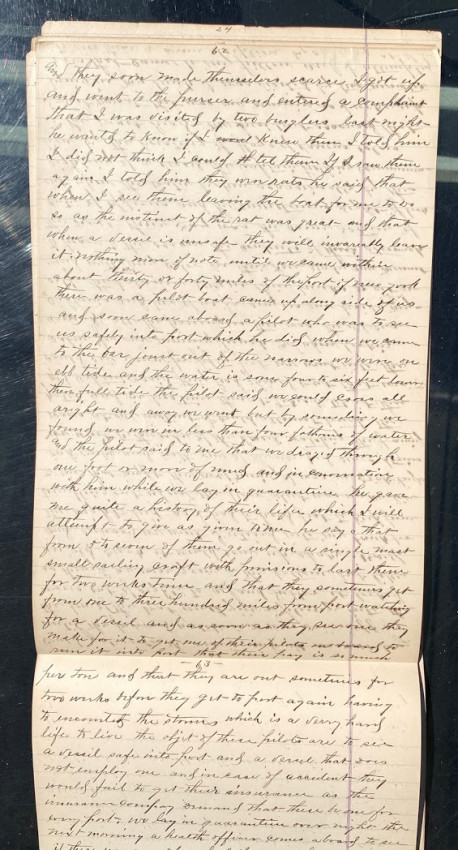 24
62
and they soon made themselves scarce I got up
and went to the purser and entered a complaint
that I was visited by two burglers last night
he wanted to know if I knew them I told him
I did not think I could tel them If I saw them
again I told him they wer rats he said that
when I see them leaving the boat for me to do
so as the instinct of the rat was great and that
when a vessel is unsafe they will invareatly leave
it nothing more of note until we came within
about thirty or forty miles of the port of new york
there was a pilot boat came up along side of us
and soon came aboard a pilot who was to see
us safely into port which he did when we came
to the bar joust out of the narrows we were on
ebb tide and the water is some four to six feet lower
then full tide the pilot said we could cross all
aright and away we went but by sounding we
found we wer in less than four fathoms of water
and the pilot said to me that we draged through
one foot or more of mud and in conversation
with him while we lay in quarantine he gave
me quite a history of their life which I will
attempt to give as given to me he says that
from to seven of them go out in a single mast
small sailing craft with provisions to last them
for two weeks time and that they sometimes get
from one to three hundred miles from port watching
for a vessel and as soon as they see one they
make for it to get one of their pilots on board to
run it into port that their pay is so much
63
per ton and that they are out sometimes for
two weeks before they get to port again having
to encounter the storms which is a verry hard
life to live the objet of these pilots are to see
a vessel safe into port and a vessel that does
not employ one and in case of accident they
would fail to get their insurance as the
insurance compay demand that there be one for
every port we lay in quarantine over night the
next morning a health officer comes aboard to see